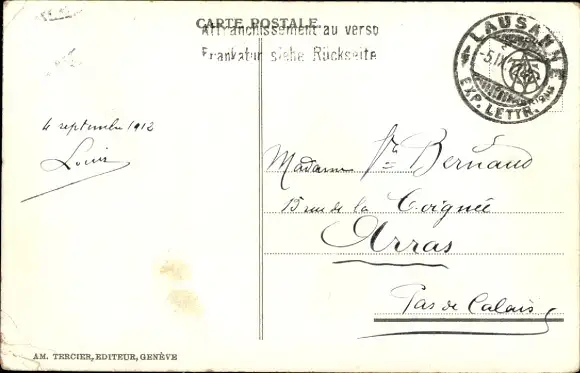 CARTE POSTALE.
Affranchissement au verso
Frankatur siehe Rückseite
LAUSANNE
EXP. LETTR.
4 septembre 1912
Louis
Madame Bernand
15 rue de la Coignée
Arras
Pas de Calais
AM. TERCIER, EDITEUR, GENÈVE